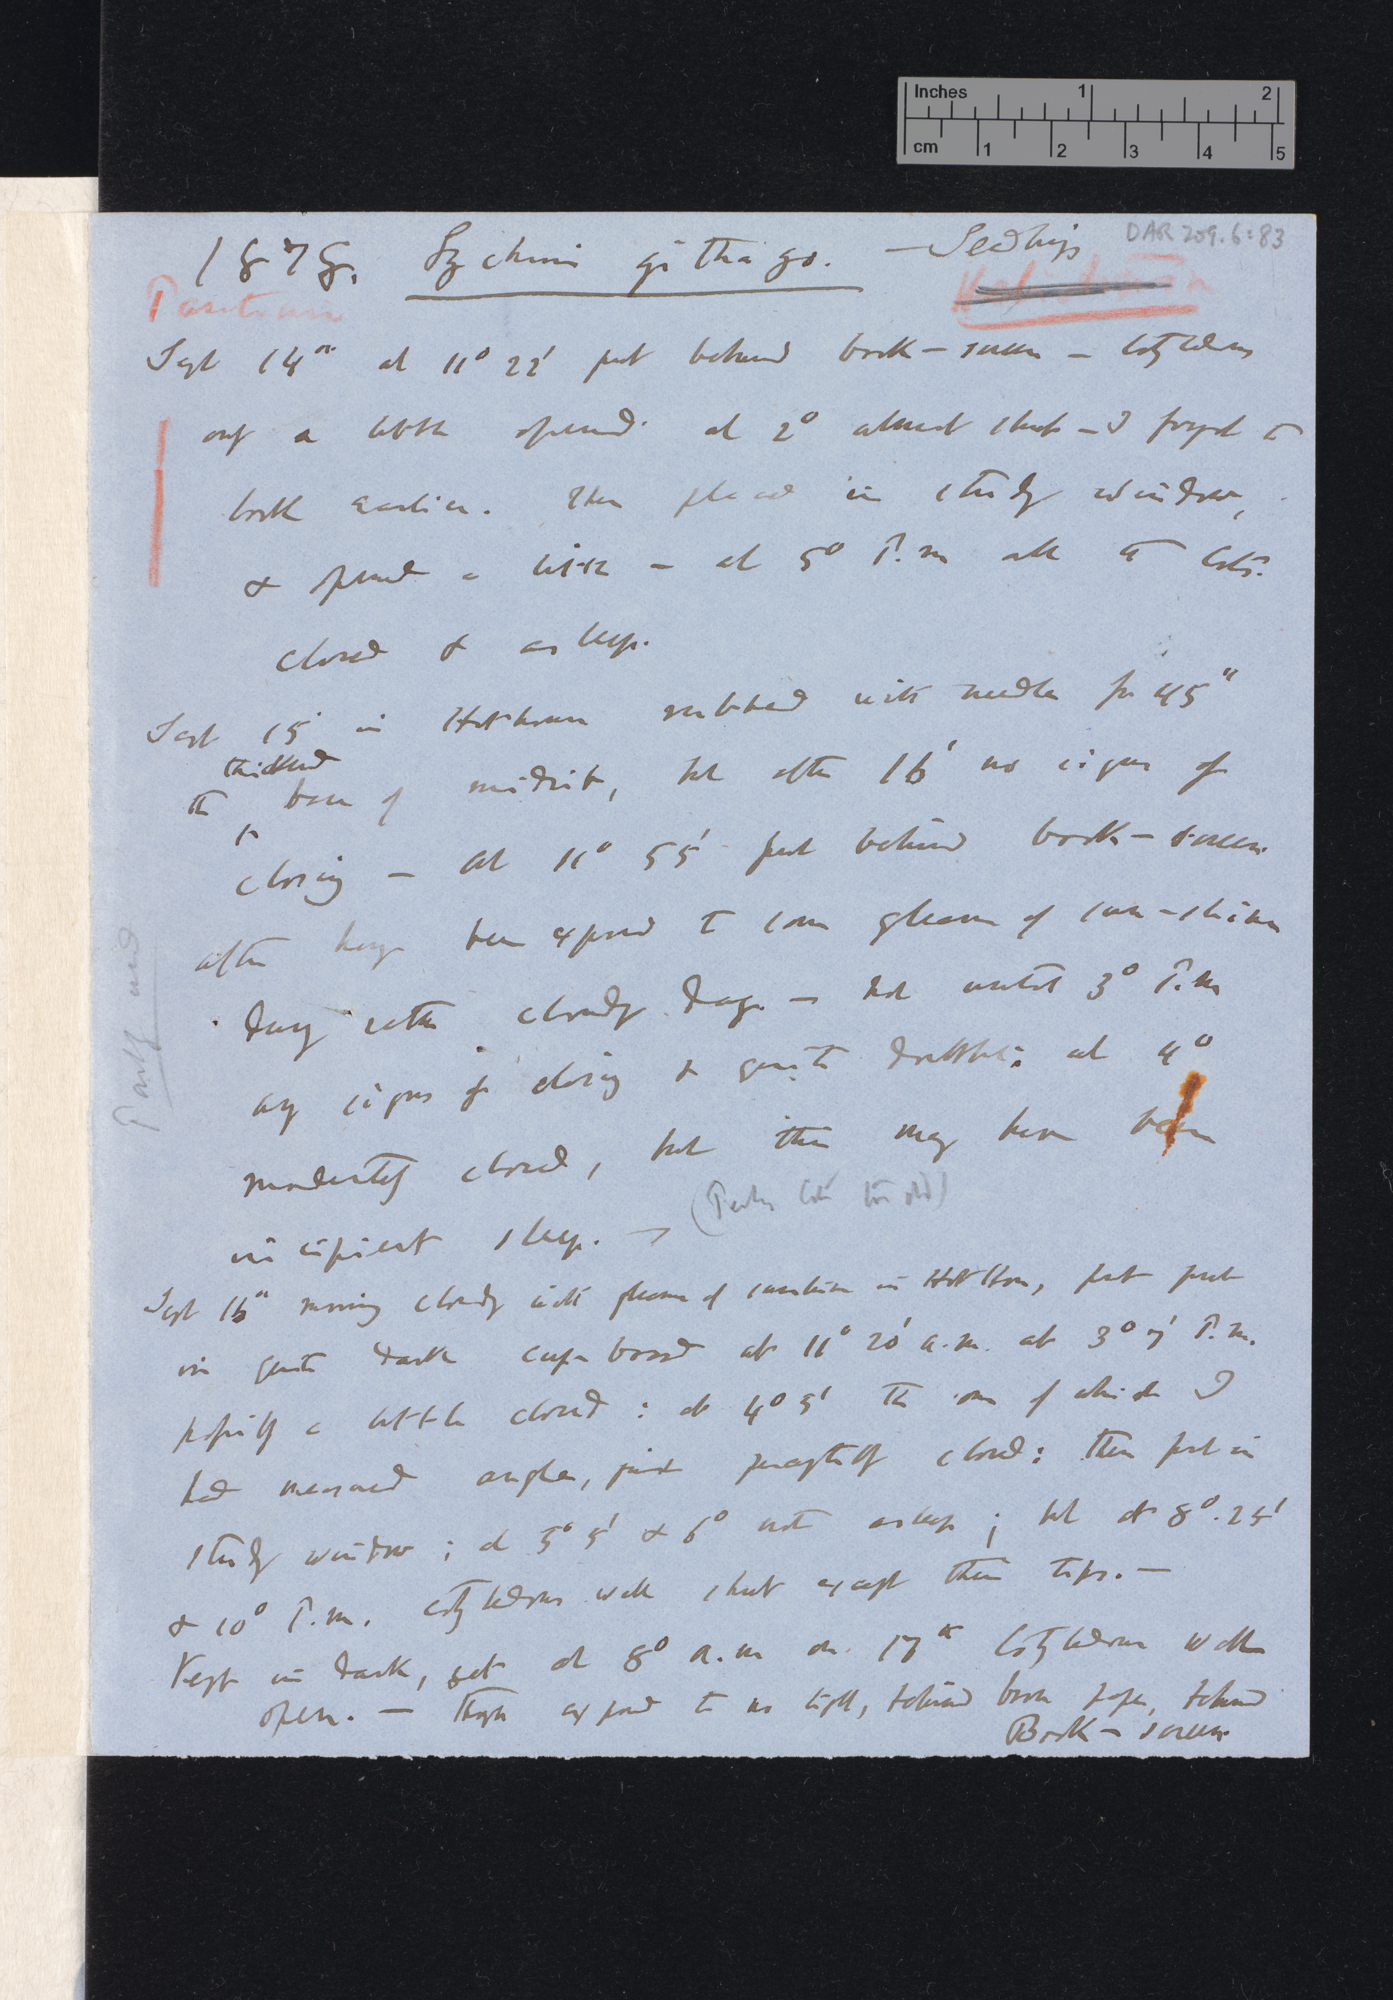 Inches 1 2
cm 1 2 3 4 5
DAR 209.6:83
1878. Lychnis githago. — Seedlings
Sept 14th at 11° 22' put behind book-screen — Cotyledons
only a little opened. at 2° almost shut — I forgot to
look earlier. Then placed in study window,
& opened a little — at 5° P.m all the Cots.
closed & asleep.
Sept 15 in Hothouse rubbed with needle for 45"
thickened
the base of midrib, but after 16' no signs of
closing — at 11° 55' put behind book-screen
after having been exposed to some gleams of sun-shine
during rather cloudy day — not until 3° P.m
any signs of closing & quite doubtful; at 4°
moderately closed, but this may have been
incipient sleep. —
(Perhaps Cots too old)
Partly used
Sept 16th morning cloudy with gleams of sunshine in Hot House, put
in quite dark cup-board at 11° 20' a.m. at 3° 7' P.m.
a little closed : at 4° 5' the one of which I
had measured angles, just closed: then put in
study window ; at 5° 5' & 6° not asleep ; but at 8°.25'
& 10° P.m. cotyledons well shut except their tips. —
Kept in dark, yet at 8° a.m on 17th Cotyledons well
open. — Though exposed to no light, behind brown paper, behind
Book-screen